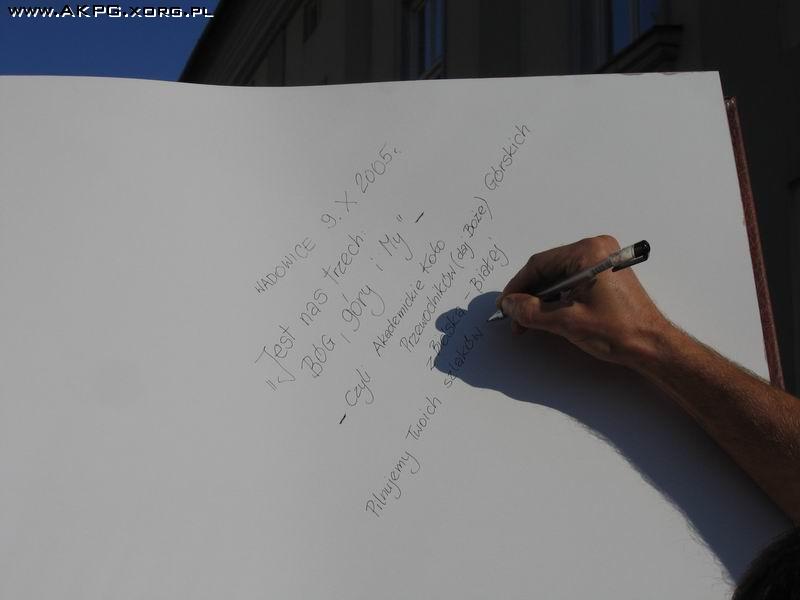 www.AKPG.xorg.pl
WADOWICE 9.X 2005r.
"Jest nas trzech:
BÓG, góry i My" -
- czyli Akademickie Koło
Przewodników (daj Boże) Górskich
z Bielska - Białej
Pilnujemy Twoich szlaków